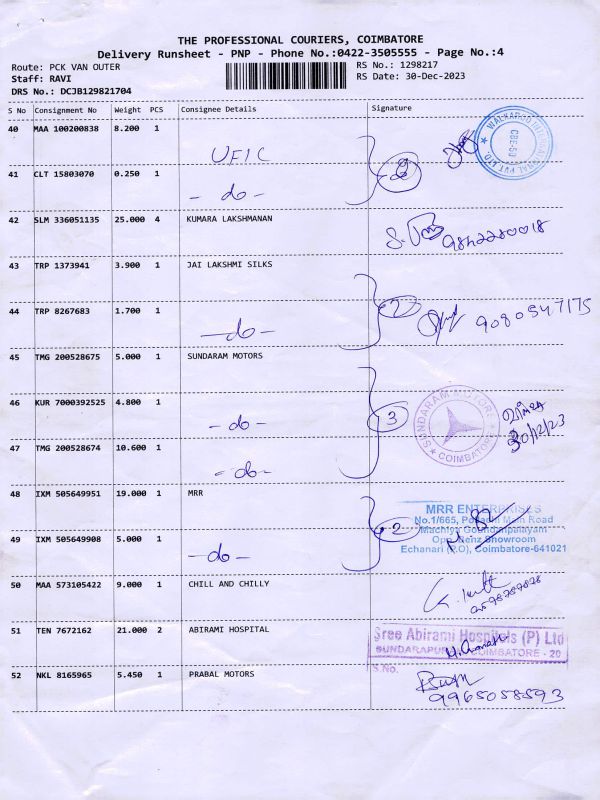 THE PROFESSIONAL COURIERS, COIMBATORE
Delivery Runsheet - PNP - Phone No.:0422-3505555 - Page No.:4
Route: PCK VAN OUTER
RS No.: 1298217
Staff: RAVI
RS Date: 30-Dec-2023
DRS No.: DCJB129821704
S No Consignment No Weight PCS Consignee Details Signature
40 MAA 100200838 8.200 1
UEIC
WALKAROO INTERNATIONAL PVT LTD.
CBE-50
41 CLT 15803070 0.250 1
- do -
2
42 SLM 336051135 25.000 4 KUMARA LAKSHMANAN
9842280018
43 TRP 1373941 3.900 1 JAI LAKSHMI SILKS
44 TRP 8267683 1.700 1
- do -
2
9080547175
45 TMG 200528675 5.000 1 SUNDARAM MOTORS
46 KUR 7000392525 4.800 1
- do -
3
SUNDARAM MOTORS
COIMBATORE
30/12/23
47 TMG 200528674 10.600 1
- do -
48 IXM 505649951 19.000 1 MRR
MRR ENTERPRISES
No.1/665, Pollachi Main Road
Machiya Goundenpalayam
Opp. Benz Showroom
Echanari (P.O), Coimbatore-641021
49 IXM 505649908 5.000 1
- do -
2
50 MAA 573105422 9.000 1 CHILL AND CHILLY
51 TEN 7672162 21.000 2 ABIRAMI HOSPITAL
Sree Abirami Hospitals (P) Ltd
SUNDARAPURAM, COIMBATORE - 20
S.No.
52 NKL 8165965 5.450 1 PRABAL MOTORS
9965058593